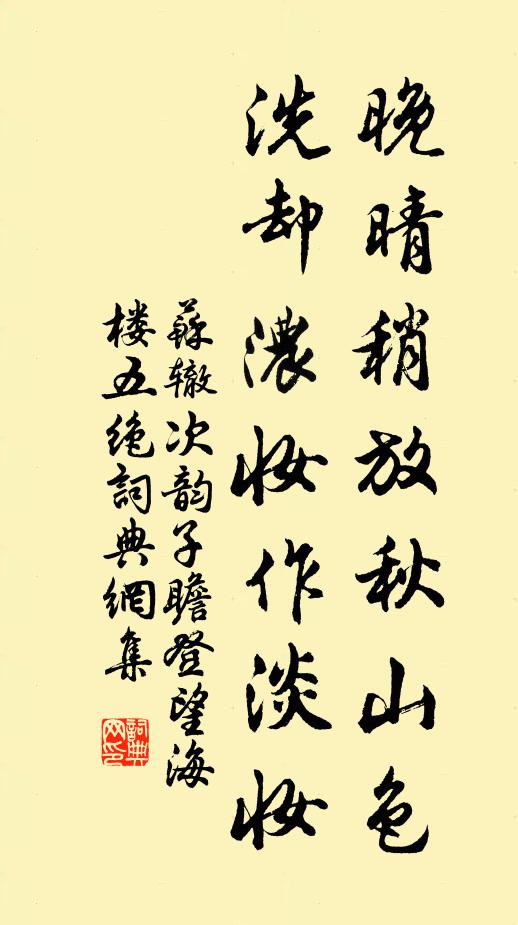 晚晴稍放秋山色
洗却濃妆作淡妆
蘇辙次韵子瞻登望海
楼五絶詞典網集
詞典
网印